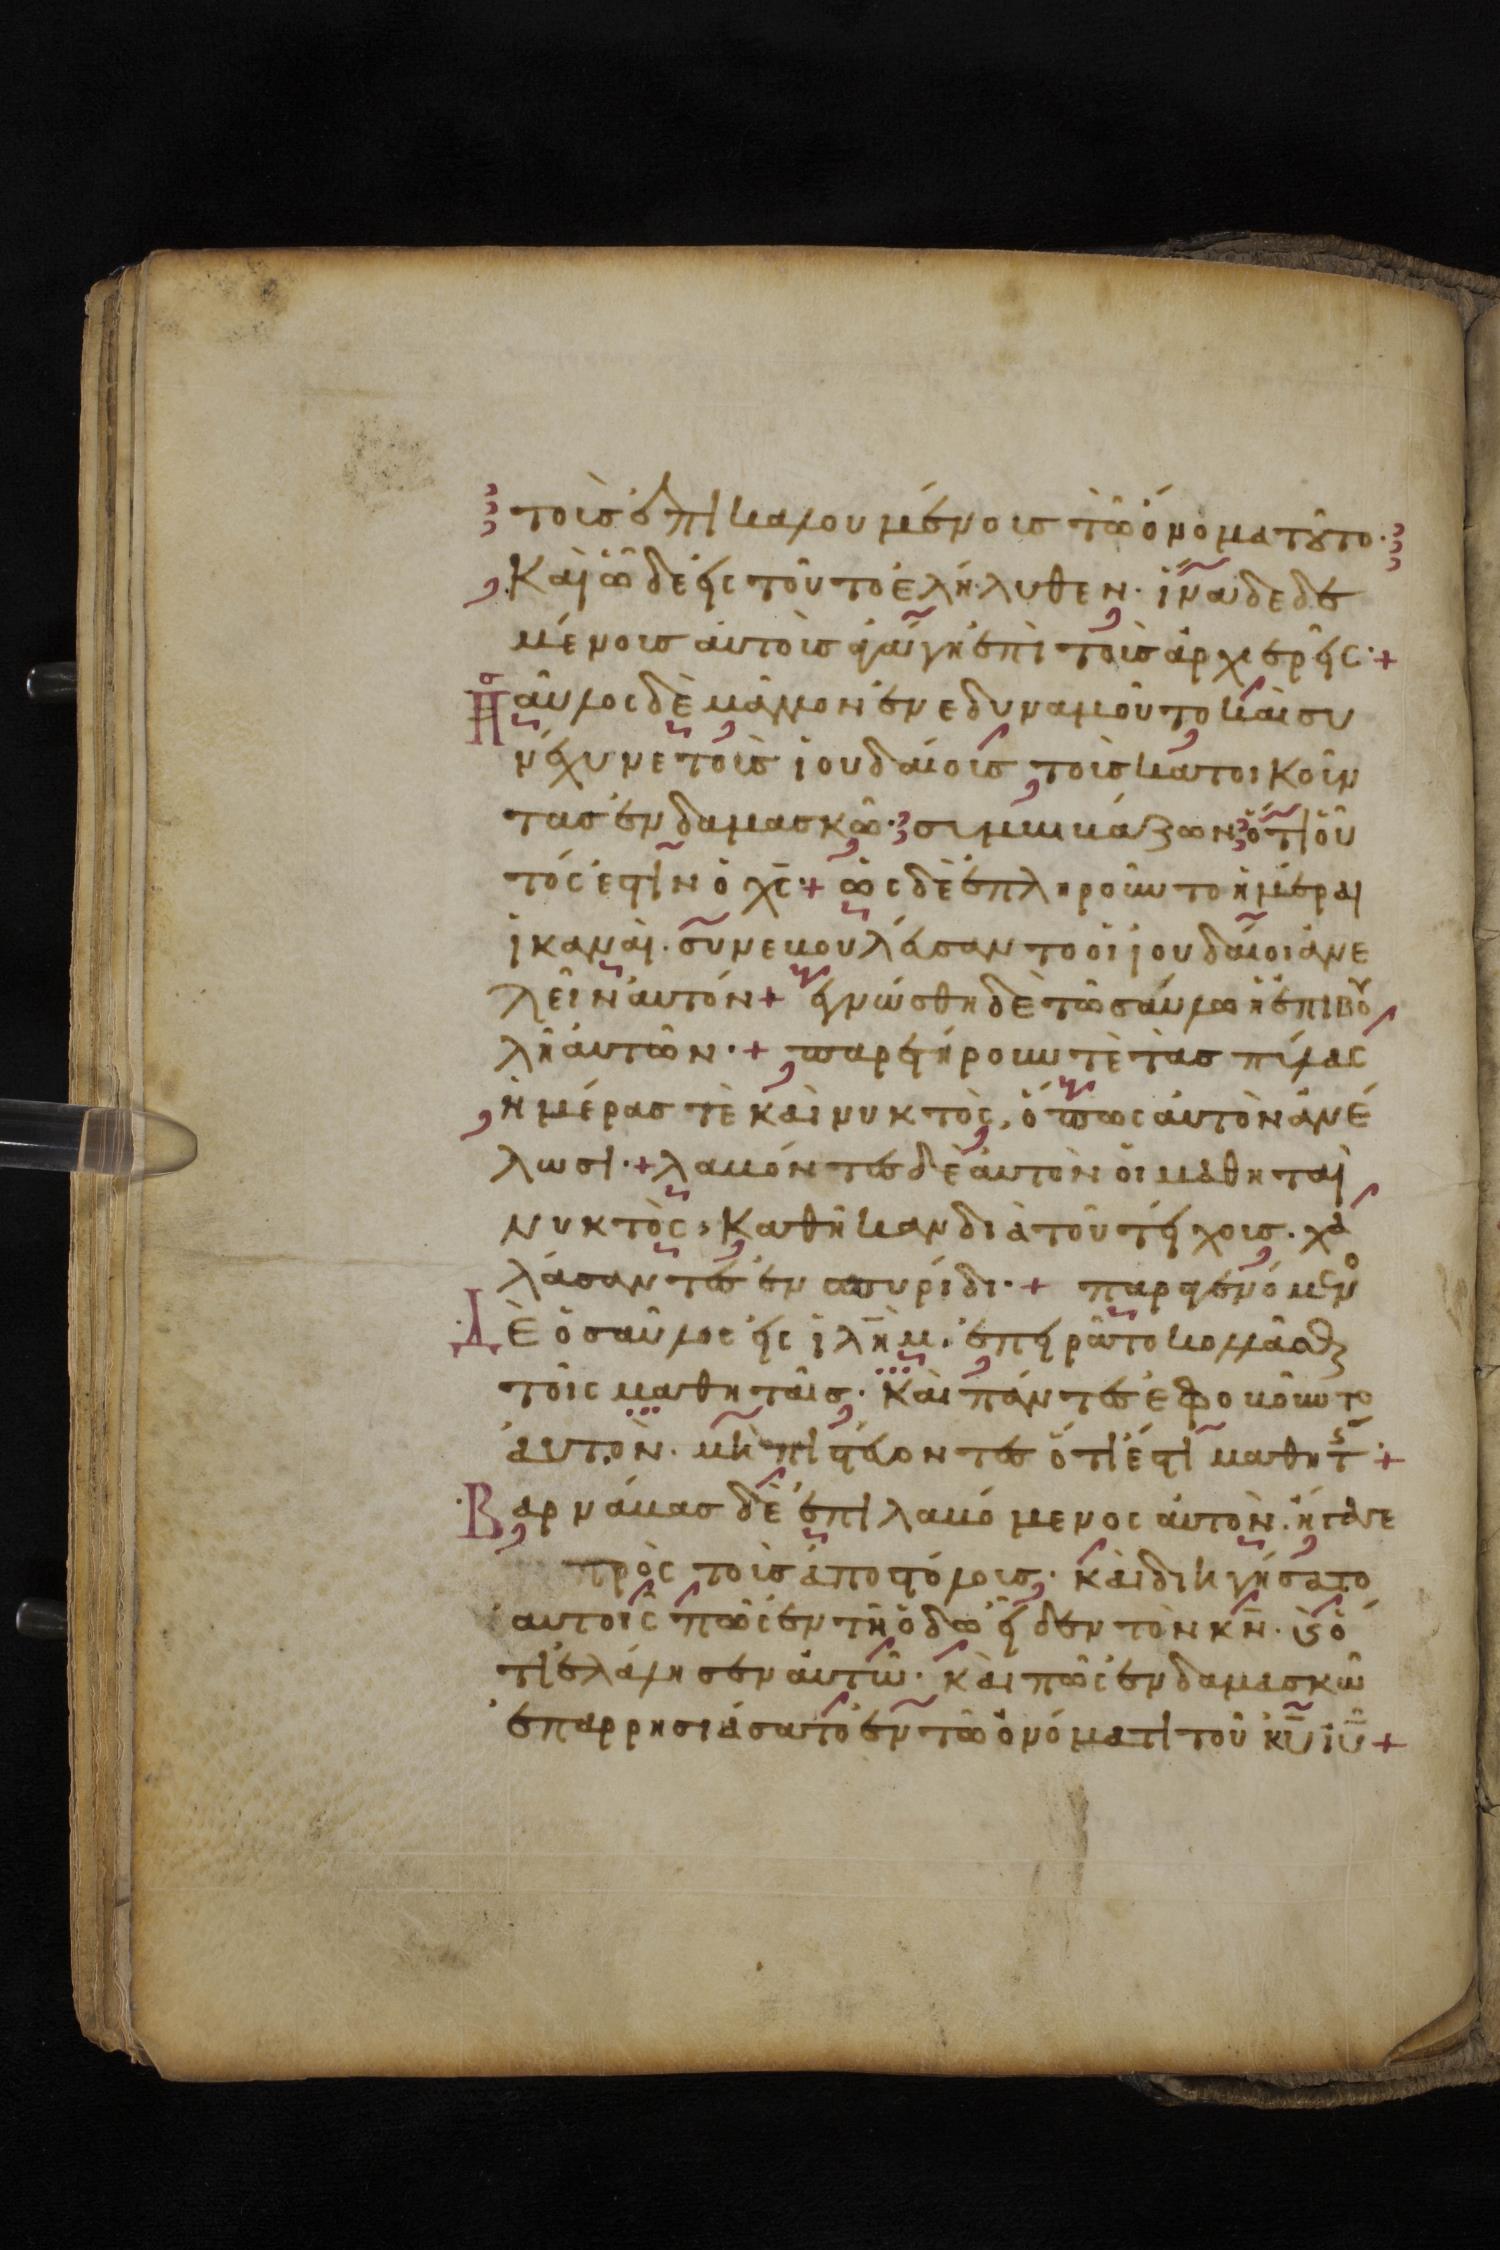 τοὶς ἐπικαλουμένοις τὸ ὄνομα τοῦτο·
Καὶ ὧδε εἰς τοῦτο ἐλήλυθεν· ἵνα δεδε
μένους αὐτοὺς ἀγάγη ἐπὶ τοὺς ἀρχιερεῖς·+
Παῦλος δὲ μᾶλλον ἐνεδυναμοῦτο καὶ συ
νέχυνε τοὺς ἰουδαίους τοὺς κατοικοῦν
τας ἐν δαμασκῶ· συμβιβάζων ὅτι οὗ
τός ἐστιν ὁ χς·+ ὡς δὲ ἐπληροῦντο ἡμέραι
ἱκαναὶ· συνεβουλεύσαντο οἱ ἰουδαῖοι ἀνε
λεῖν αὐτόν+ ἐγνώσθη δὲ τῶ σαύλω ἡ ἐπιβου
λὴ αὐτῶν·+ παρετήρουν τὲ τὰς πύλας
ἡμέρας τὲ καὶ νυκτὸς, ὅπως αὐτὸν ἀνέ
λωσι·+ λαβόντες δὲ αὐτὸν οἱ μαθηταὶ
νυκτὸς, καθῆκαν διὰ τοῦ τείχους· χα
λάσαντες ἐν σπυρίδι·+ παραγενόμενο
Δὲ ὁ σαῦλος εἰς ἱλημ· ἐπειρᾶτο κολλᾶσθαι
τοῖς μαθηταῖς· καὶ πάντες ἐφοβοῦντο
αὐτὸν· μὴ πιστεύοντες ὅτι ἐστὶ μαθητ·+
Βαρνάβας δὲ ἐπιλαβόμενος αὐτὸν· ἤγαγε
πρὸς τοὺς ἀποστόλους· καὶ διηγήσατο
αὐτοῖς πῶς ἐν τῆ ὁδῶ εἶδεν τὸν κν· κ ὅ
τι ἐλάλησεν αὐτῶ· καὶ πῶς ἐν δαμασκῶ
ἐπαρρησιάσατο ἐν τῶ ὀνόματι τοῦ κυ ιυ+